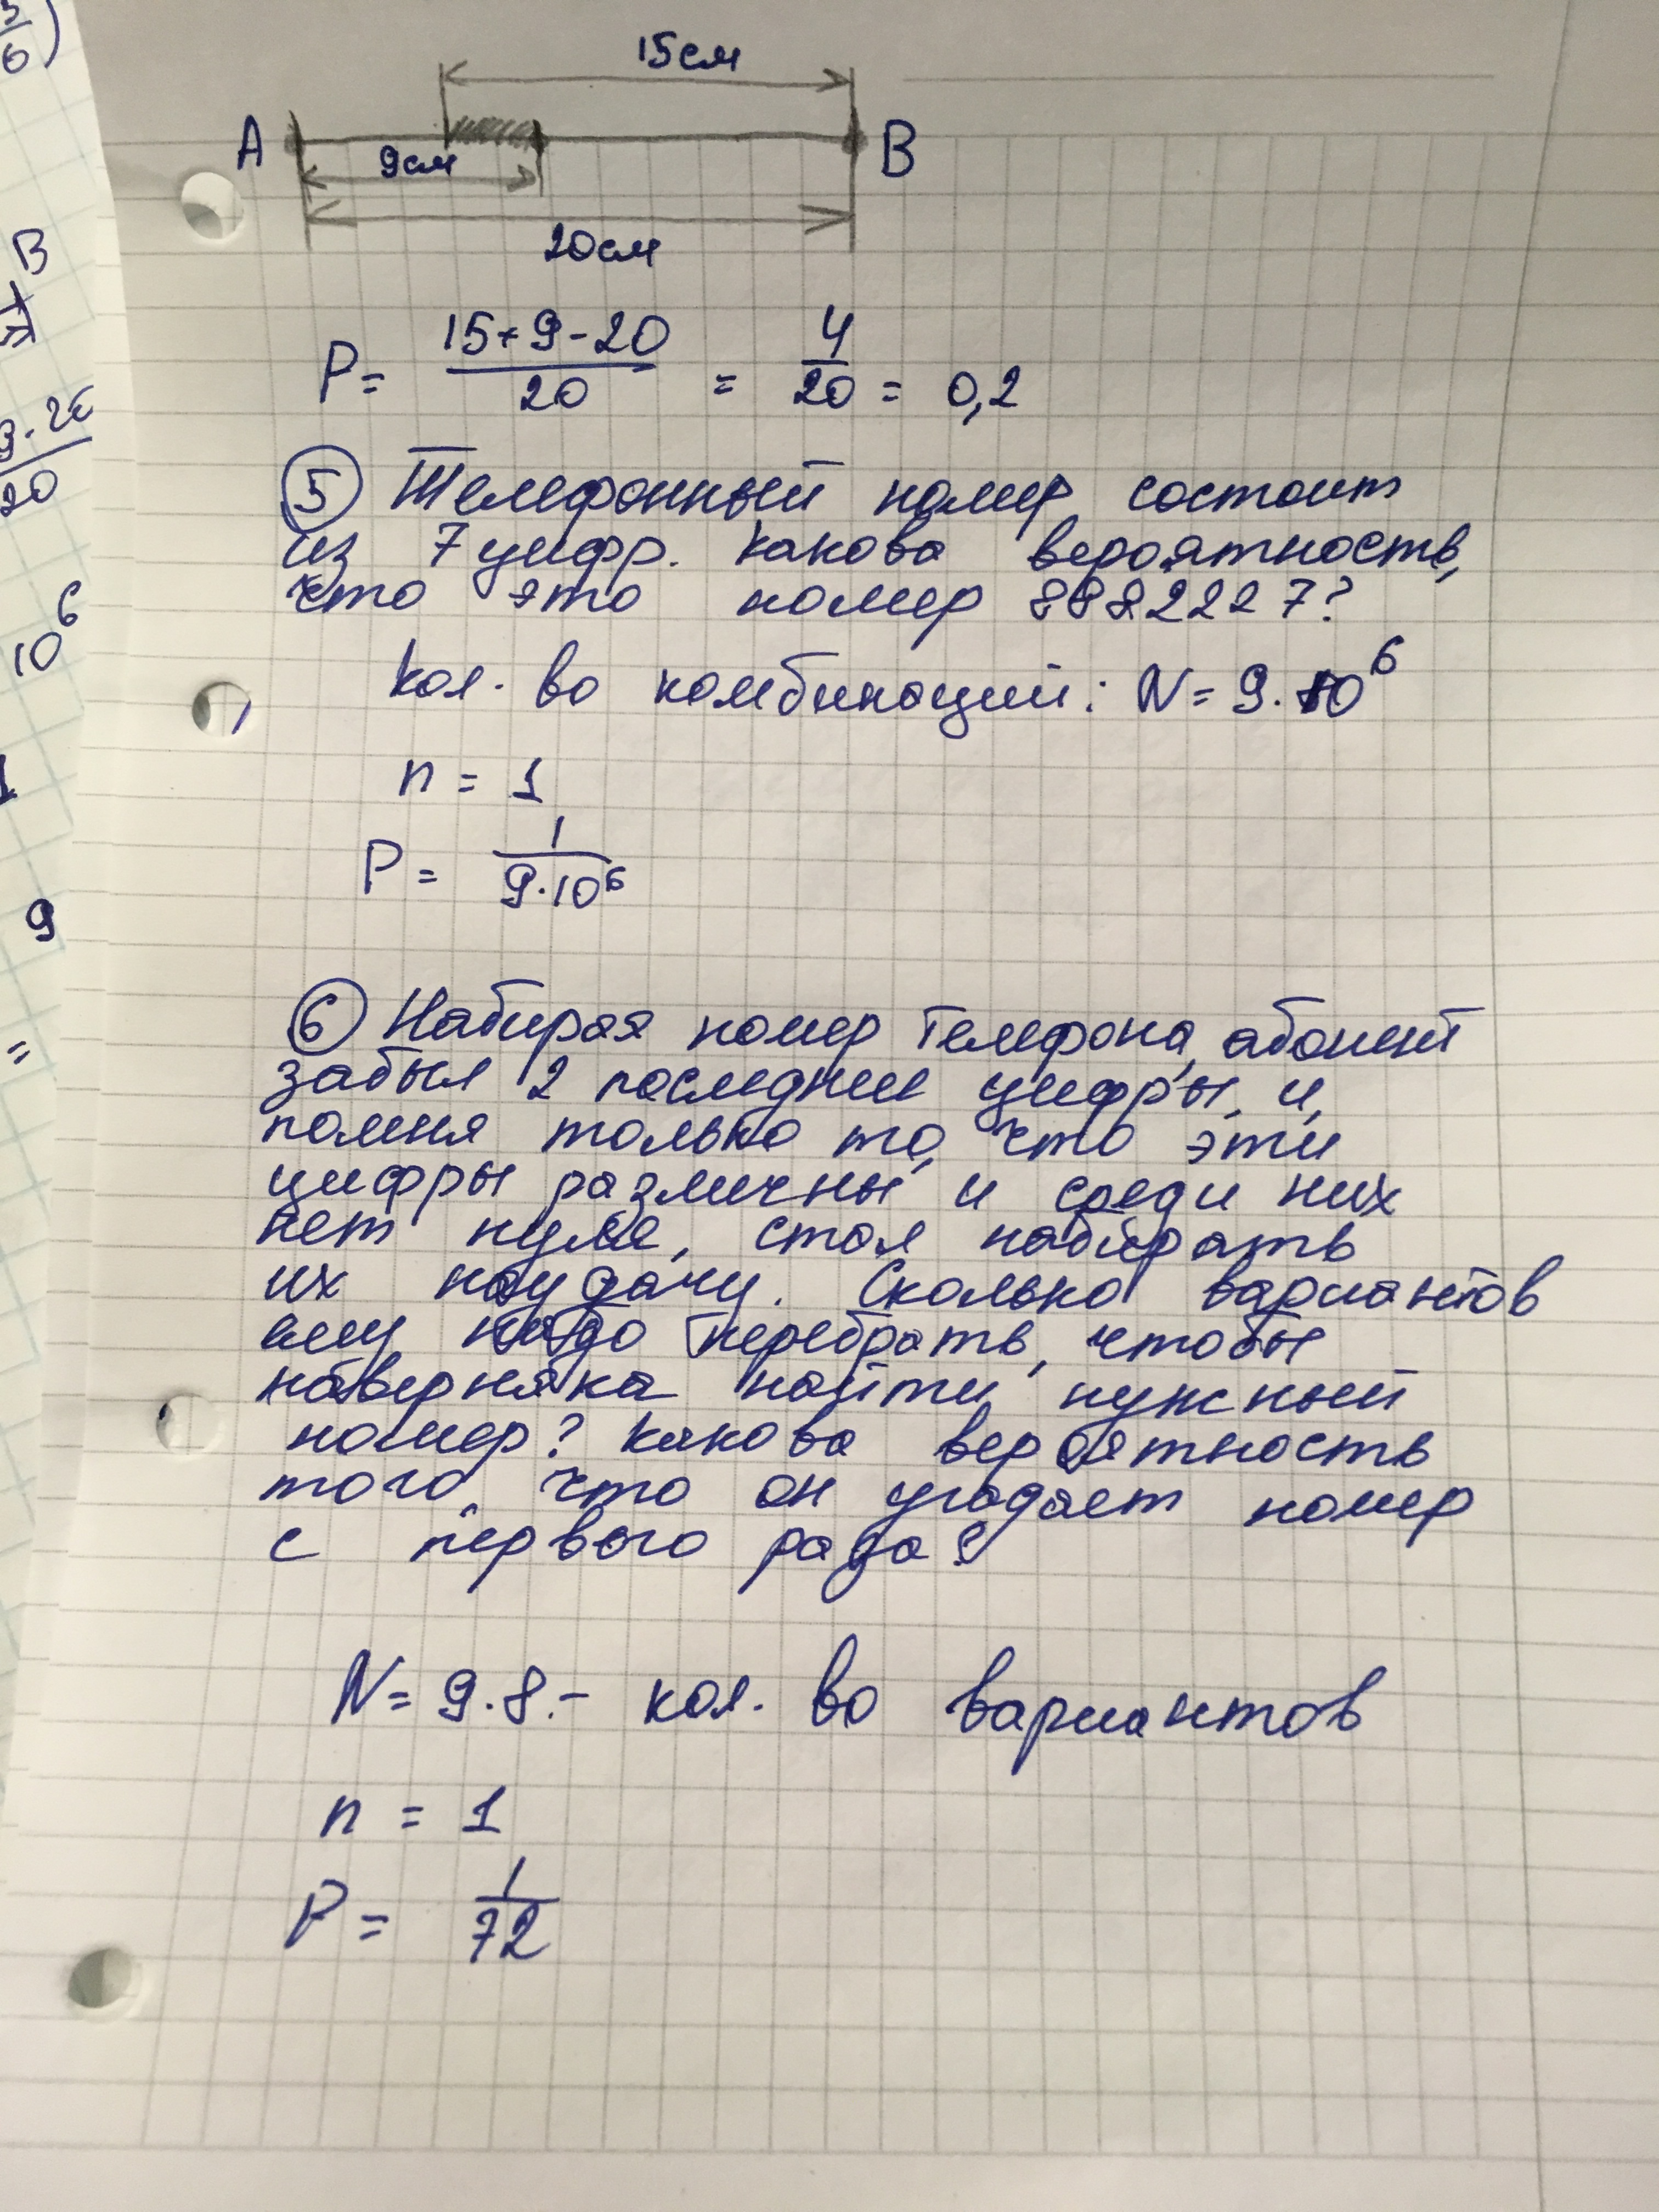 15см
A
9см
B
20см
P = 15+9-20 / 20 = 4/20 = 0,2
⑤ Телефонный номер состоит
из 7 цифр. Какова вероятность,
что это номер 8882227?
Кол-во комбинаций: N = 9·10⁶
n = 1
P = 1/9·10⁶
⑥ Набирая номер телефона, абонент
забыл 2 последние цифры, и,
помня только то, что эти
цифры различны и среди них
нет нуля, стал набирать
их наудачу. Сколько вариантов
ему надо перебрать, чтобы
наверняка найти нужный
номер? Какова вероятность
того, что он угадает номер
с первого раза?
N = 9·8 - кол-во вариантов
n = 1
P = 1/72
B
20
10⁶
1
9
=